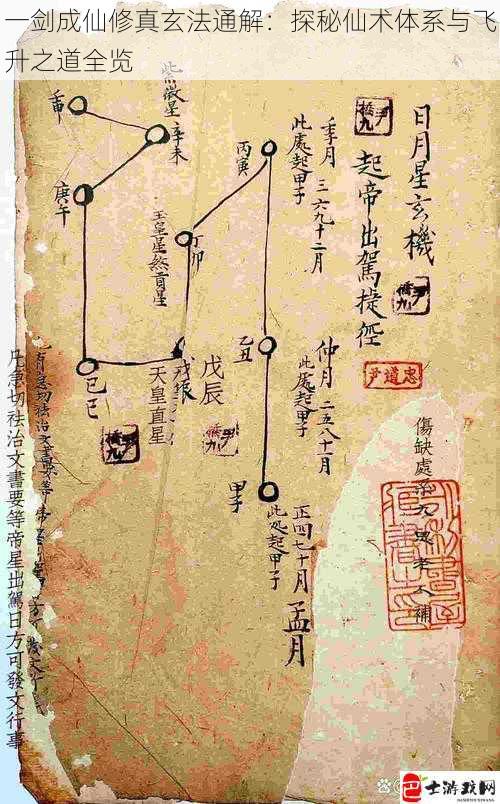 一剑成仙修真玄法通解：探秘仙术体系与飞
升之道全览
日月星玄機
起帝出駕捷徑
季月 三六九十二月
此處起甲子
仲月 二五八十一月
此處起甲子
正四七十月 孟月
此处起甲子
忠道尹
傷缺處系
補
紫微星
辛未
庚午
丙寅
丁卯
玉皇星煞貢星
乙丑
甲子
戊辰
戊辰
天皇直星
己巳
凡急切祛治文書要等帝星出駕日方可發文行事
士游戏网